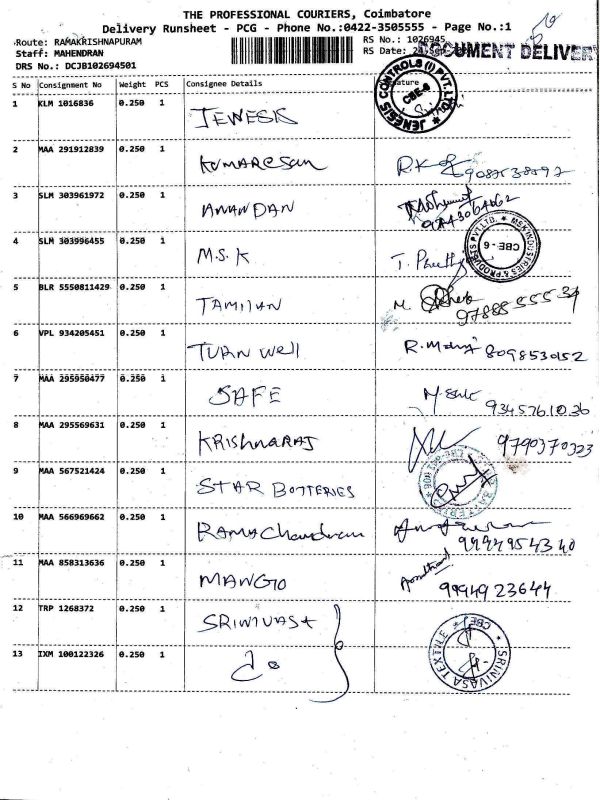 THE PROFESSIONAL COURIERS, Coimbatore
Delivery Runsheet - PCG - Phone No.:0422-3505555 - Page No.:1
Route: RAMAKRISHNAPURAM RS No.: 1026945
Staff: MAHENDRAN RS Date: DOCUMENT DELIVERY
DRS No.: DCJB102694501
S No Consignment No Weight PCS Consignee Details Signature
1 KLM 1016836 0.250 1 JEWESIS JENESIS CONTROLS (I) PVT. LTD. CBE-6
2 MAA 291912839 0.250 1 KUMARESAN R.K
3 SLM 303961972 0.250 1 ANANDAN
4 SLM 303996455 0.250 1 M.S.K CBE-6
5 BLR 5550811429 0.250 1 TAMILAN M
6 VPL 934205451 0.250 1 TURN Well 8098530152
7 MAA 295950477 0.250 1 SAFE 9345761036
8 MAA 295569631 0.250 1 KRISHNARAJ 9790370323
9 MAA 567521424 0.250 1 STAR BOTTERIES
10 MAA 566969662 0.250 1 RAMAChandran
11 MAA 858313636 0.250 1 MANGO 9994923644
12 TRP 1268372 0.250 1 SRINIVASA SRINIVASA TEXTILE CBE
13 IXM 100122326 0.250 1 do